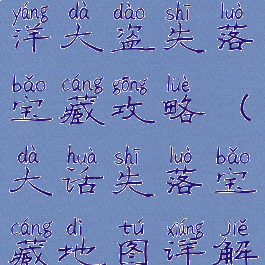 yáng dà dào shī luò
洋大盗失落
bǎo cáng gōng lüè
宝藏攻略（
dà huà shī luò bǎo
大话失落宝
cáng dì tú xiáng jiě
藏地图详解